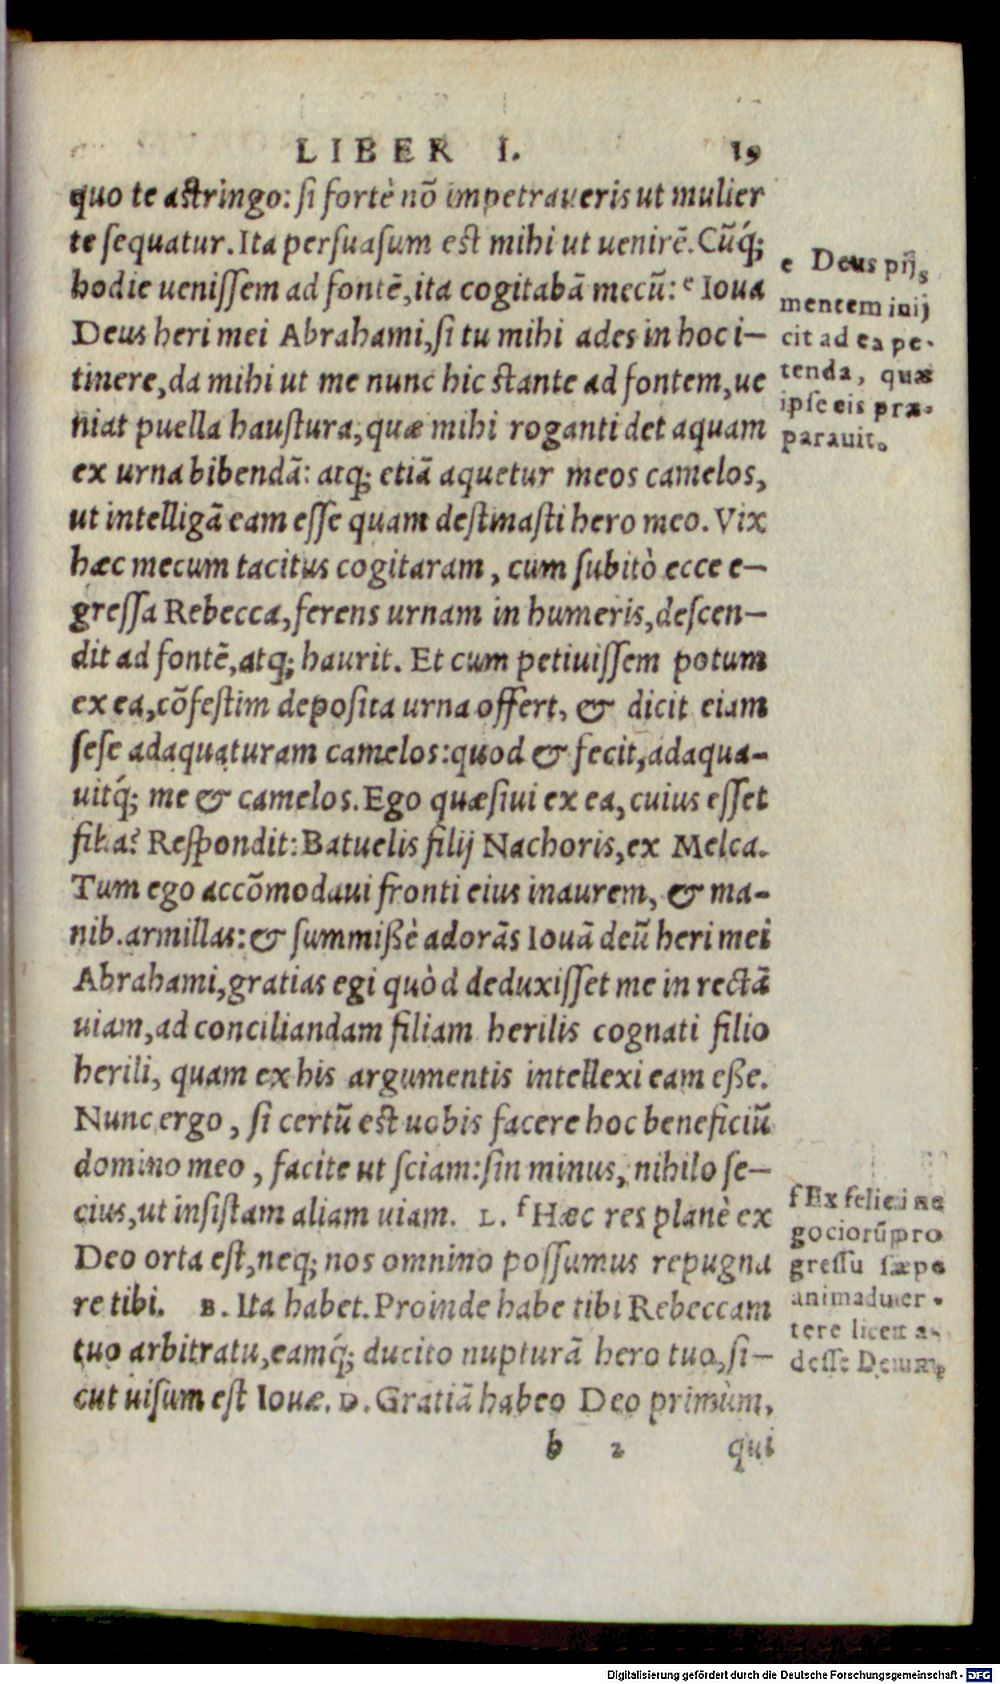 LIBER I. 19
quo te astringo: si fortè nõ impetraueris ut mulier
te sequatur. Ita persuasum est mihi ut uenirẽ. Cũq́;
hodie uenissem ad fontẽ, ita cogitabã mecũ: ᵉ Ioua
Deus heri mei Abrahami, si tu mihi ades in hoc i-
tinere, da mihi ut me nunc hic stante ad fontem, ue
niat puella haustura, quæ mihi roganti det aquam
ex urna bibendã: atq; etiã aquetur meos camelos,
ut intelligã eam esse quam destinasti hero meo. Vix
hæc mecum tacitus cogitaram, cum subitò ecce e-
gressa Rebecca, ferens urnam in humeris, descen-
dit ad fontẽ, atq; haurit. Et cum petiuissem potum
ex ea, cõfestim deposita urna offert, & dicit eiam
sese adaquaturam camelos: quod & fecit, adaqua-
uitq́; me & camelos. Ego quæsiui ex ea, cuius esset
filia? Respondit: Batuelis filij Nachoris, ex Melca.
Tum ego accõmodaui fronti eius inaurem, & ma-
nib. armillas: & summißè adorãs Iouã deũ heri mei
Abrahami, gratias egi quòd deduxisset me in rectã
uiam, ad conciliandam filiam herilis cognati filio
herili, quam ex his argumentis intellexi eam eße.
Nunc ergo, si certũ est uobis facere hoc beneficiũ
domino meo, facite ut sciam: sin minus, nihilo se-
cius, ut insistam aliam uiam. L. ᶠHæc res planè ex
Deo orta est, neq; nos omnino possumus repugna
re tibi. B. Ita habet. Proinde habe tibi Rebeccam
tuo arbitratu, eamq́; ducito nupturã hero tuo, si-
cut uisum est Iouæ. D. Gratiã habeo Deo primùm,
b 2 qui
e Deus pijs
mentem inij
cit ad ea pe-
tenda, quæ
ipse eis præ-
parauit.
f Ex felici ne
gociorũ pro
gressu sæpe
animaduer-
tere licet a-
desse Deum
Digitalisierung gefördert durch die Deutsche Forschungsgemeinschaft - DFG